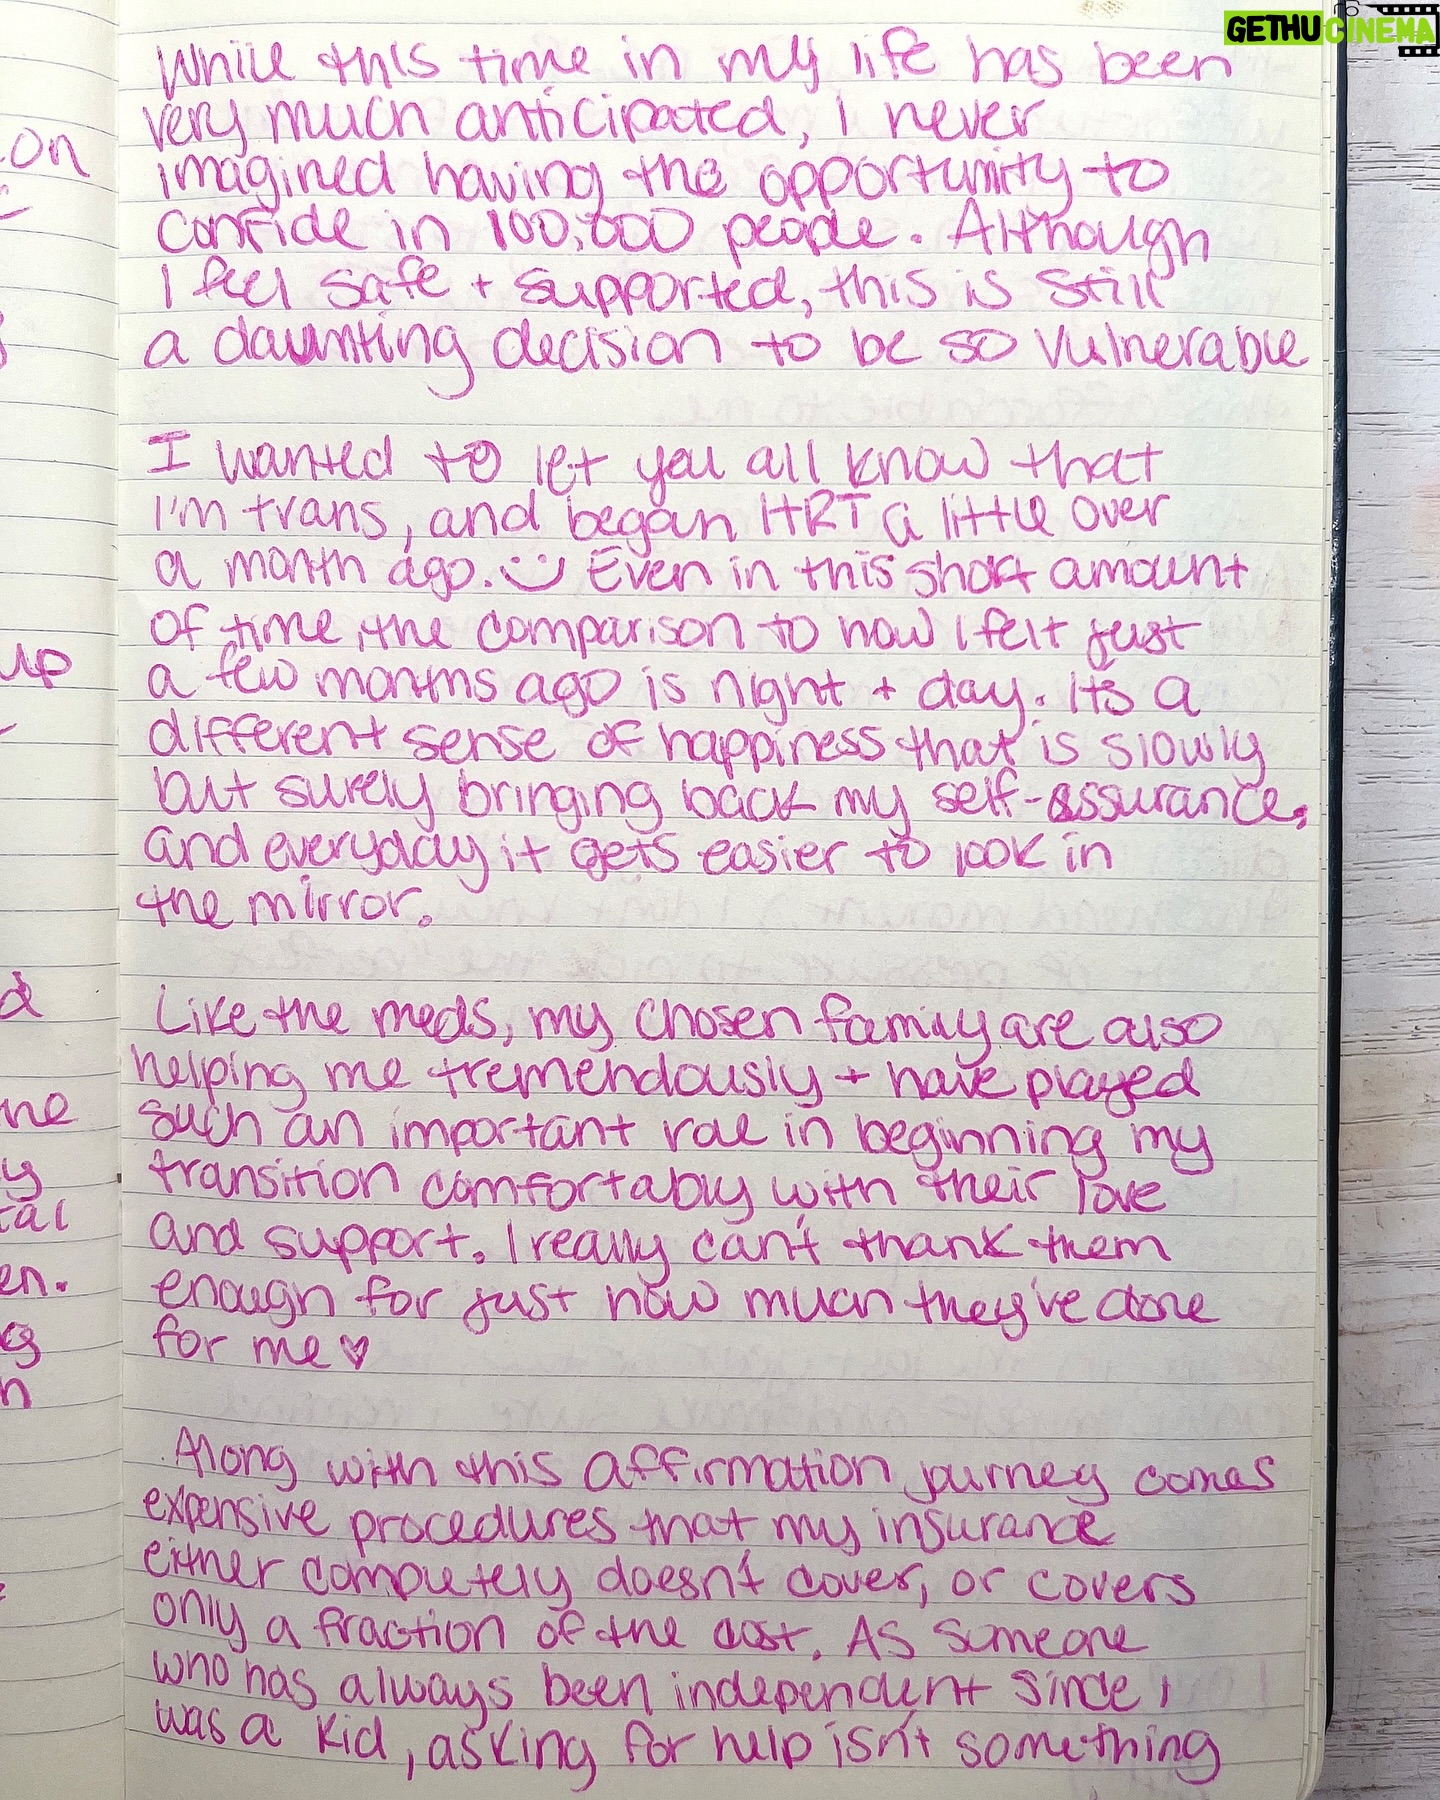 GETHUCINEMA
While this time in my life has been
very much anticipated, I never
imagined having the opportunity to
confide in 100,000 people. Although
I feel safe + supported, this is still
a daunting decision to be so vulnerable.
I wanted to let you all know that
I'm trans, and began HRT a little over
a month ago. :) Even in this short amount
of time, the comparison to how I felt just
a few months ago is night + day. Its a
different sense of happiness that is slowly
but surely bringing back my self-assurance,
and everyday it gets easier to look in
the mirror.
Like the meds, my chosen family are also
helping me tremendously + have played
such an important role in beginning my
transition comfortably with their love
and support. I really can't thank them
enough for just how much they've done
for me ♥
Along with this affirmation journey comes
expensive procedures that my insurance
either completely doesn't cover, or covers
only a fraction of the cost. As someone
who has always been independent since I
was a kid, asking for help isn't something